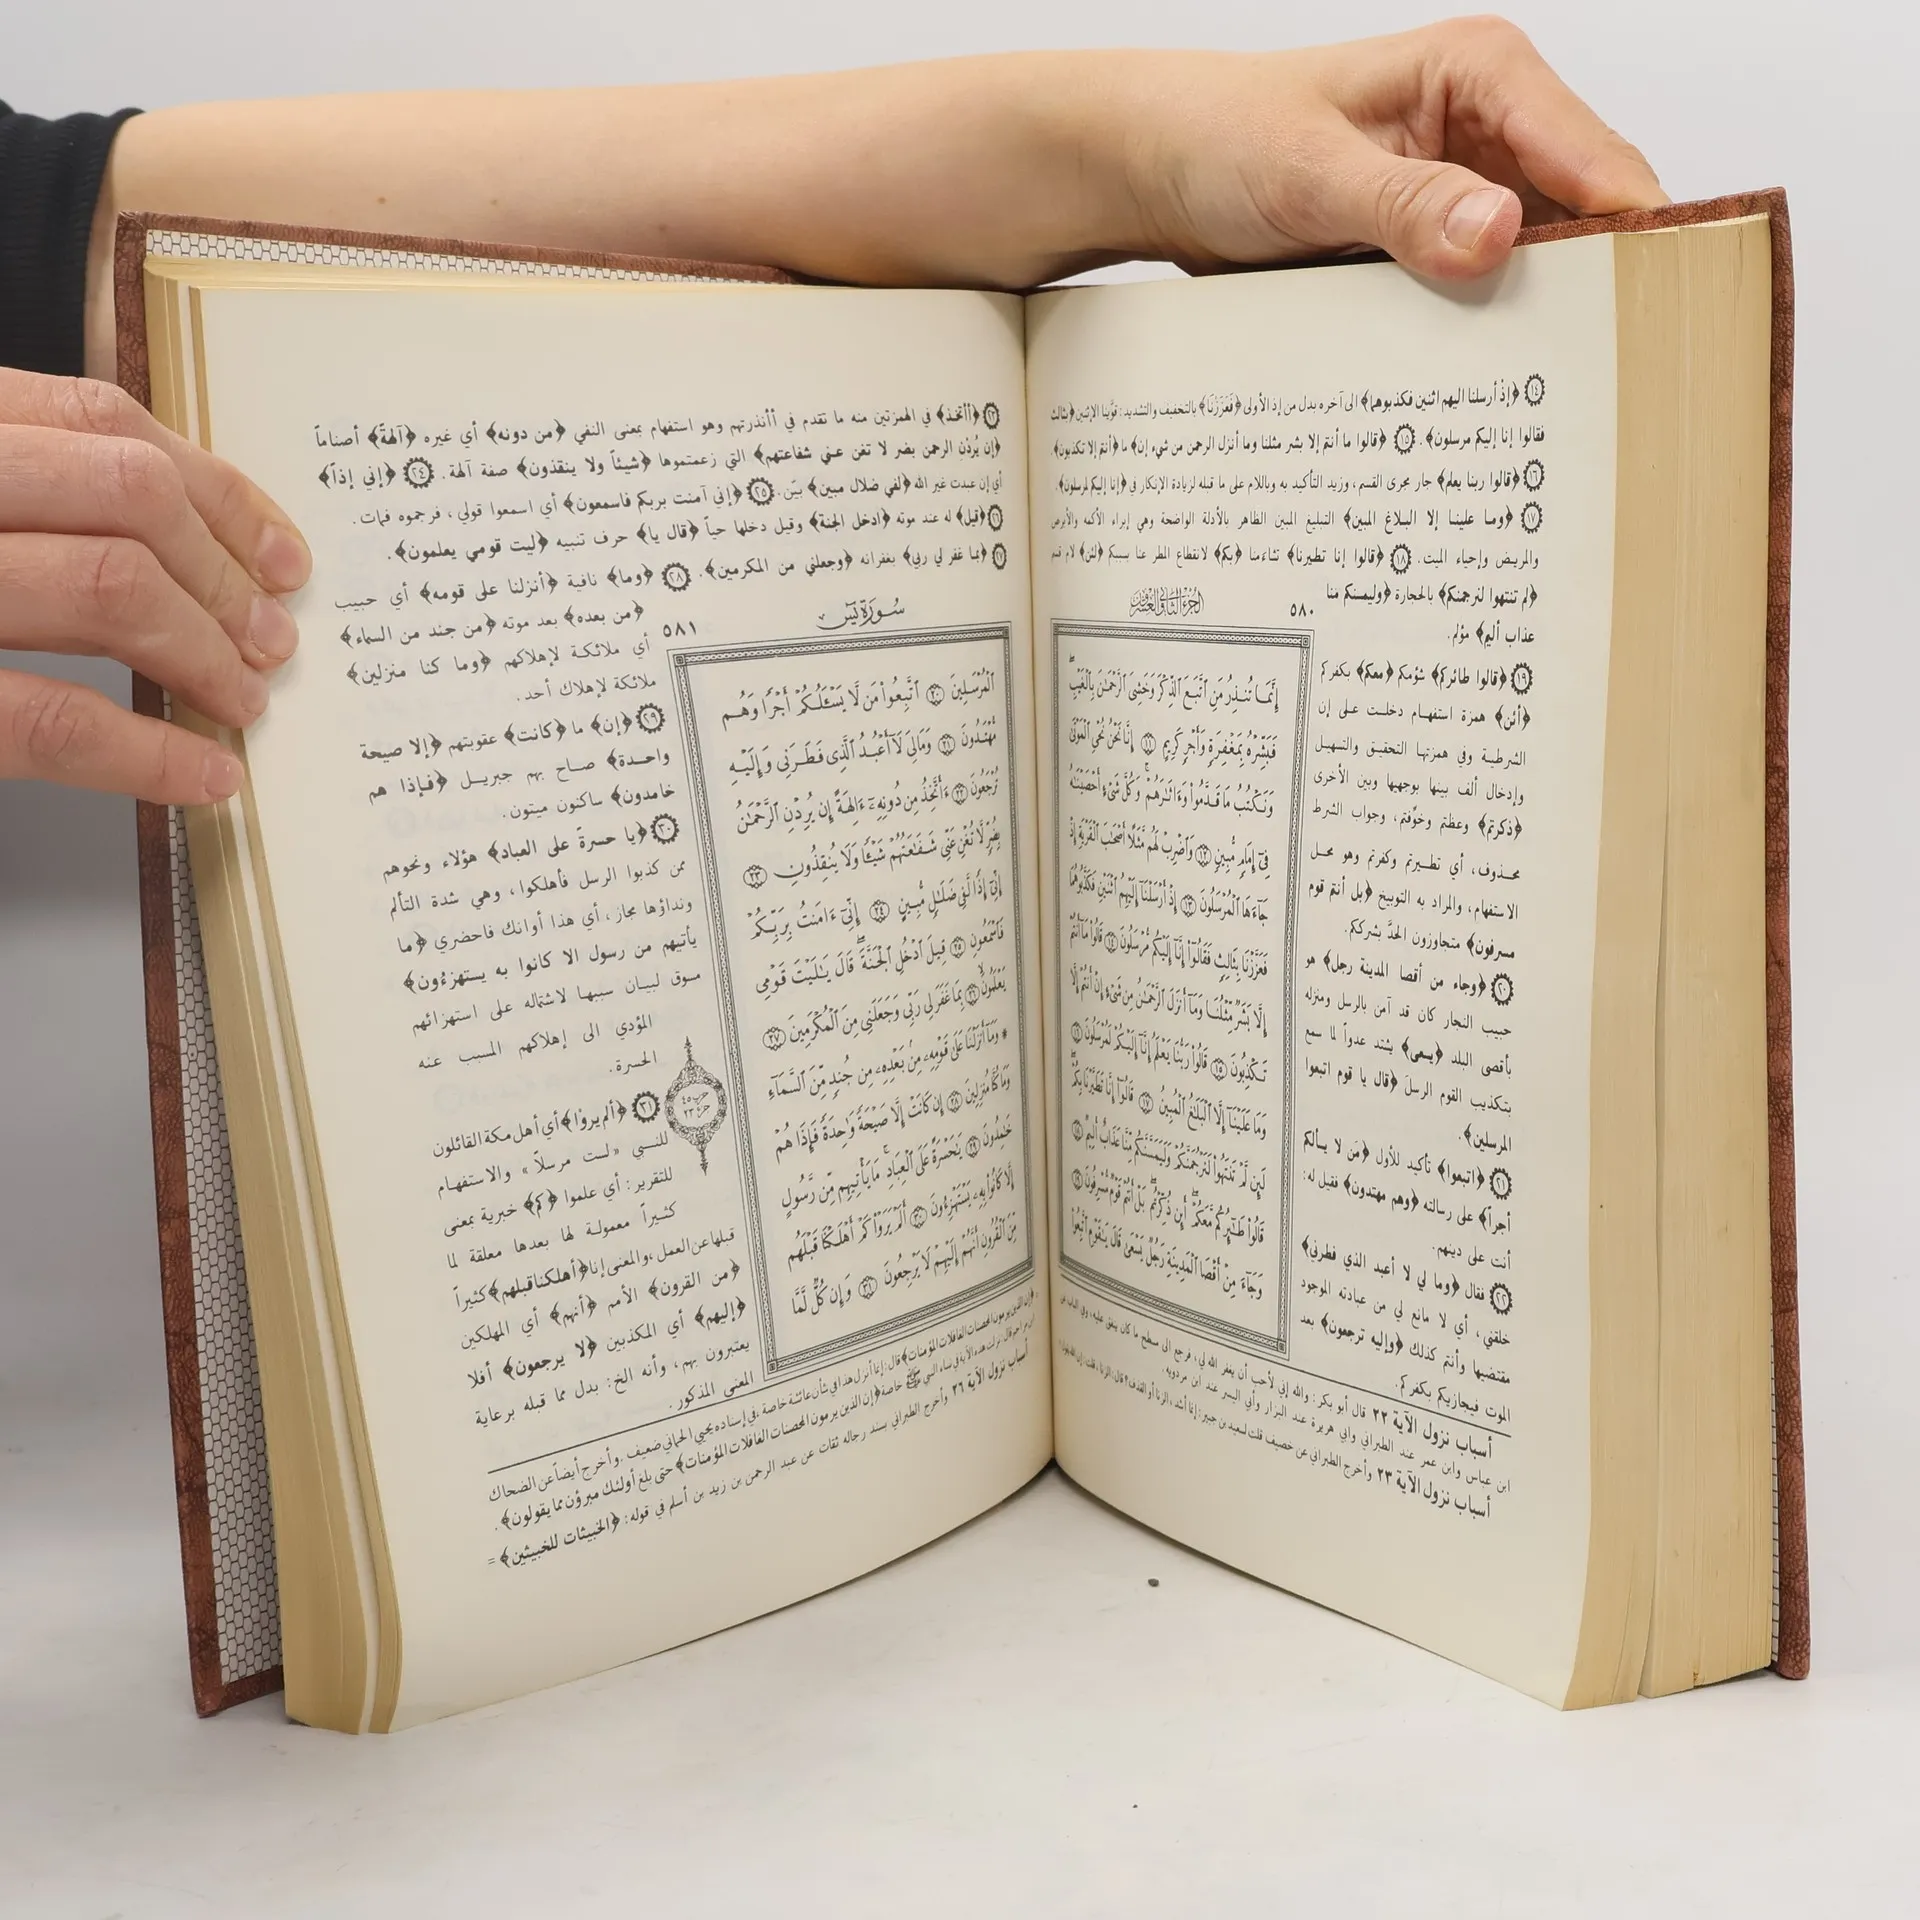 ١٤ ﴿إذ أرسلنا اليهم اثنين فكذبوهما﴾ الى آخره بدل من إذ الأولى ﴿فَعَزَّزْنَا﴾ بالتخفيف والتشديد: قوَّينا الإثنين ﴿بثالث
فقالوا إنا إليكم مرسلون﴾. ١٥ ﴿قالوا ما أنتم إلا بشر مثلنا وما أنزل الرحمن من شيء إن﴾ ما ﴿أنتم إلا تكذبون﴾.
١٦ ﴿قالوا ربنا يعلم﴾ جار مجرى القسم، وزيد التأكيد به وباللام على ما قبله لزيادة الإنكار في ﴿إنا إليكم لمرسلون﴾.
١٧ ﴿وما علينا إلا البلاغ المبين﴾ التبليغ المبين الظاهر بالأدلة الواضحة وهي إبراء الأكمه والأبرص
والمريض وإحياء الميت. ١٨ ﴿قالوا إنا تطيرنا﴾ تشاءمنا ﴿بكم﴾ لانقطاع المطر عنا بسببكم ﴿لئن﴾ لام قسم
﴿لم تنتهوا لنرجمنكم﴾ بالحجارة ﴿وليمسنكم منا
عذاب أليم﴾ مؤلم.
١٩ ﴿قالوا طائركم﴾ شؤمكم ﴿معكم﴾ بكفركم
﴿أئن﴾ همزة استفهام دخلت على إن
الشرطية وفي همزتها التحقيق والتسهيل
وإدخال ألف بينها بوجهيها وبين الأخرى
﴿ذكرتم﴾ وعظتم وخوِّفتم، وجواب الشرط
محذوف، أي تطيرتم وكفرتم وهو محل
الاستفهام، والمراد به التوبيخ ﴿بل أنتم قوم
مسرفون﴾ متجاوزون الحدَّ بشرككم.
٢٠ ﴿وجاء من أقصا المدينة رجل﴾ هو
حبيب النجار كان قد آمن بالرسل ومنزله
بأقصى البلد ﴿يسعى﴾ يشتد عدواً لما سمع
بتكذيب القوم الرسلَ ﴿قال يا قوم اتبعوا
المرسلين﴾.
٢١ ﴿اتبعوا﴾ تأكيد للأول ﴿مَن لا يسألكم
أجراً﴾ على رسالته ﴿وهم مهتدون﴾ فقيل له:
أنت على دينهم.
٢٢ فقال ﴿وما لي لا أعبد الذي فطرني﴾
خلقني، أي لا مانع لي من عبادته الموجود
مقتضيها وأنتم كذلك ﴿وإليه ترجعون﴾ بعد
الموت فيجازيكم بكفركم.
٥٨٠ الجزء الثاني والعشرون
إِنَّمَا تُنذِرُ مَنِ ٱتَّبَعَ ٱلذِّكْرَ وَخَشِىَ ٱلرَّحْمَٰنَ بِٱلْغَيْبِ
فَبَشِّرْهُ بِمَغْفِرَةٍ وَأَجْرٍ كَرِيمٍ ١١ إِنَّا نَحْنُ نُحْىِ ٱلْمَوْتَىٰ
وَنَكْتُبُ مَا قَدَّمُوا۟ وَءَاثَٰرَهُمْ وَكُلَّ شَىْءٍ أَحْصَيْنَٰهُ
فِىٓ إِمَامٍ مُّبِينٍ ١٢ وَٱضْرِبْ لَهُم مَّثَلًا أَصْحَٰبَ ٱلْقَرْيَةِ إِذْ
جَآءَهَا ٱلْمُرْسَلُونَ ١٣ إِذْ أَرْسَلْنَآ إِلَيْهِمُ ٱثْنَيْنِ فَكَذَّبُوهُمَا
فَعَزَّزْنَا بِثَالِثٍ فَقَالُوٓا۟ إِنَّآ إِلَيْكُم مُّرْسَلُونَ ١٤ قَالُوا۟ مَآ أَنتُمْ
إِلَّا بَشَرٌ مِّثْلُنَا وَمَآ أَنزَلَ ٱلرَّحْمَٰنُ مِن شَىْءٍ إِنْ أَنتُمْ إِلَّا
تَكْذِبُونَ ١٥ قَالُوا۟ رَبُّنَا يَعْلَمُ إِنَّآ إِلَيْكُمْ لَمُرْسَلُونَ ١٦
وَمَا عَلَيْنَآ إِلَّا ٱلْبَلَٰغُ ٱلْمُبِينُ ١٧ قَالُوٓا۟ إِنَّا تَطَيَّرْنَا بِكُمْ
لَئِن لَّمْ تَنتَهُوا۟ لَنَرْجُمَنَّكُمْ وَلَيَمَسَّنَّكُم مِّنَّا عَذَابٌ أَلِيمٌ ١٨
قَالُوا۟ طَٰٓئِرُكُم مَّعَكُمْ أَئِن ذُكِّرْتُم بَلْ أَنتُمْ قَوْمٌ مُّسْرِفُونَ ١٩
وَجَآءَ مِنْ أَقْصَا ٱلْمَدِينَةِ رَجُلٌ يَسْعَىٰ قَالَ يَٰقَوْمِ ٱتَّبِعُوا۟
أسباب نزول الآية ٢٢ قال أبو بكر: والله إني لأحب أن يغفر الله لي، فرجع الى مسطح ما كان ينفق عليه، وفي الباب عن
ابن عباس وابن عمر عند الطبراني وأبي هريرة عند البزار وأبي اليسر عند ابن مردويه.
أسباب نزول الآية ٢٣ وأخرج الطبراني عن خصيف قلت لسعيد بن جبير: إنما أشد، الزنا أو القذف؟ قال: الزنا، قلت: إن الله يقول:
٢٣ ﴿أأتخذ﴾ في الهمزتين منه ما تقدم في أأنذرتهم وهو استفهام بمعنى النفي ﴿من دونه﴾ أي غيره ﴿آلهةً﴾ أصناماً
﴿إن يُردْنِ الرحمن بضر لا تغن عني شفاعتهم﴾ التي زعمتموها ﴿شيئاً ولا ينقذون﴾ صفة آلهة. ٢٤ ﴿إني إذاً﴾
أي إن عبدت غير الله ﴿لفي ضلال مبين﴾ بيّن. ٢٥ ﴿إني آمنت بربكم فاسمعون﴾ أي اسمعوا قولي، فرجموه فمات.
٢٦ ﴿قيل﴾ له عند موته ﴿ادخل الجنة﴾ وقيل دخلها حياً ﴿قال يا﴾ حرف تنبيه ﴿ليت قومي يعلمون﴾.
٢٧ ﴿بما غفر لي ربي﴾ بغفرانه ﴿وجعلني من المكرمين﴾. ٢٨ ﴿وما﴾ نافية ﴿أنزلنا على قومه﴾ أي حبيب
﴿من بعده﴾ بعد موته ﴿من جند من السماء﴾
أي ملائكة لإهلاكهم ﴿وما كنا منزلين﴾
ملائكة لإهلاك أحد.
٢٩ ﴿إن﴾ ما ﴿كانت﴾ عقوبتهم ﴿إلا صيحة
واحدة﴾ صاح بهم جبريل ﴿فإذا هم
خامدون﴾ ساكنون ميتون.
٣٠ ﴿يا حسرةً على العباد﴾ هؤلاء ونحوهم
ممن كذبوا الرسل فأهلكوا، وهي شدة التألم
ونداؤها مجاز، أي هذا أوانك فاحضري ﴿ما
يأتيهم من رسول الا كانوا به يستهزءون﴾
مسوق لبيان سببها لاشتماله على استهزائهم
المؤدي الى إهلاكهم المسبب عنه
الحسرة.
٣١ ﴿ألم يروْا﴾ أي أهل مكة القائلون
للنبي «لست مرسلاً» والاستفهام
للتقرير: أي علموا ﴿كم﴾ خبرية بمعنى
كثيراً معمولة لها بعدها معلقة لما
قبلها عن العمل، والمعنى إنا ﴿أهلكنا قبلهم﴾ كثيراً
﴿من القرون﴾ الأمم ﴿أنهم﴾ أي المهلكين
﴿إليهم﴾ أي المكذبين ﴿لا يرجعون﴾ أفلا
يعتبرون بهم، وأنه الخ: بدل مما قبله برعاية
المعنى المذكور.
سورة يس ٥٨١
ٱلْمُرْسَلِينَ ٢٠ ٱتَّبِعُوا۟ مَن لَّا يَسْـَٔلُكُمْ أَجْرًا وَهُم
مُّهْتَدُونَ ٢١ وَمَالِىَ لَآ أَعْبُدُ ٱلَّذِى فَطَرَنِى وَإِلَيْهِ
تُرْجَعُونَ ٢٢ ءَأَتَّخِذُ مِن دُونِهِۦٓ ءَالِهَةً إِن يُرِدْنِ ٱلرَّحْمَٰنُ
بِضُرٍّ لَّا تُغْنِ عَنِّى شَفَٰعَتُهُمْ شَيْـًٔا وَلَا يُنقِذُونِ ٢٣
إِنِّىٓ إِذًا لَّفِى ضَلَٰلٍ مُّبِينٍ ٢٤ إِنِّىٓ ءَامَنتُ بِرَبِّكُمْ
فَٱسْمَعُونِ ٢٥ قِيلَ ٱدْخُلِ ٱلْجَنَّةَ قَالَ يَٰلَيْتَ قَوْمِى
يَعْلَمُونَ ٢٦ بِمَا غَفَرَ لِى رَبِّى وَجَعَلَنِى مِنَ ٱلْمُكْرَمِينَ ٢٧
* وَمَآ أَنزَلْنَا عَلَىٰ قَوْمِهِۦ مِنۢ بَعْدِهِۦ مِن جُندٍ مِّنَ ٱلسَّمَآءِ
وَمَا كُنَّا مُنزِلِينَ ٢٨ إِن كَانَتْ إِلَّا صَيْحَةً وَٰحِدَةً فَإِذَا هُمْ
خَٰمِدُونَ ٢٩ يَٰحَسْرَةً عَلَى ٱلْعِبَادِ مَا يَأْتِيهِم مِّن رَّسُولٍ
إِلَّا كَانُوا۟ بِهِۦ يَسْتَهْزِءُونَ ٣٠ أَلَمْ يَرَوْا۟ كَمْ أَهْلَكْنَا قَبْلَهُم
مِّنَ ٱلْقُرُونِ أَنَّهُمْ إِلَيْهِمْ لَا يَرْجِعُونَ ٣١ وَإِن كُلٌّ لَّمَّا
حزب ٤٥
جزء ٢٣
﴿إن الذين يرمون المحصنات الغافلات المؤمنات﴾ قال: إنما أنزل هذا في شأن عائشة خاصة، في إسناده يحيى الحماني ضعيف. وأخرج أيضاً عن الضحاك
ابن مزاحم قال: نزلت هذه الآية في نساء النبي ﷺ خاصة ﴿إن الذين يرمون المحصنات الغافلات المؤمنات﴾ حتى بلغ أولئك مبرؤن مما يقولون﴾.
أسباب نزول الآية ٢٦ وأخرج الطبراني بسند رجاله ثقات عن عبد الرحمن بن زيد بن أسلم في قوله: ﴿الخبيثات للخبيثين﴾ =